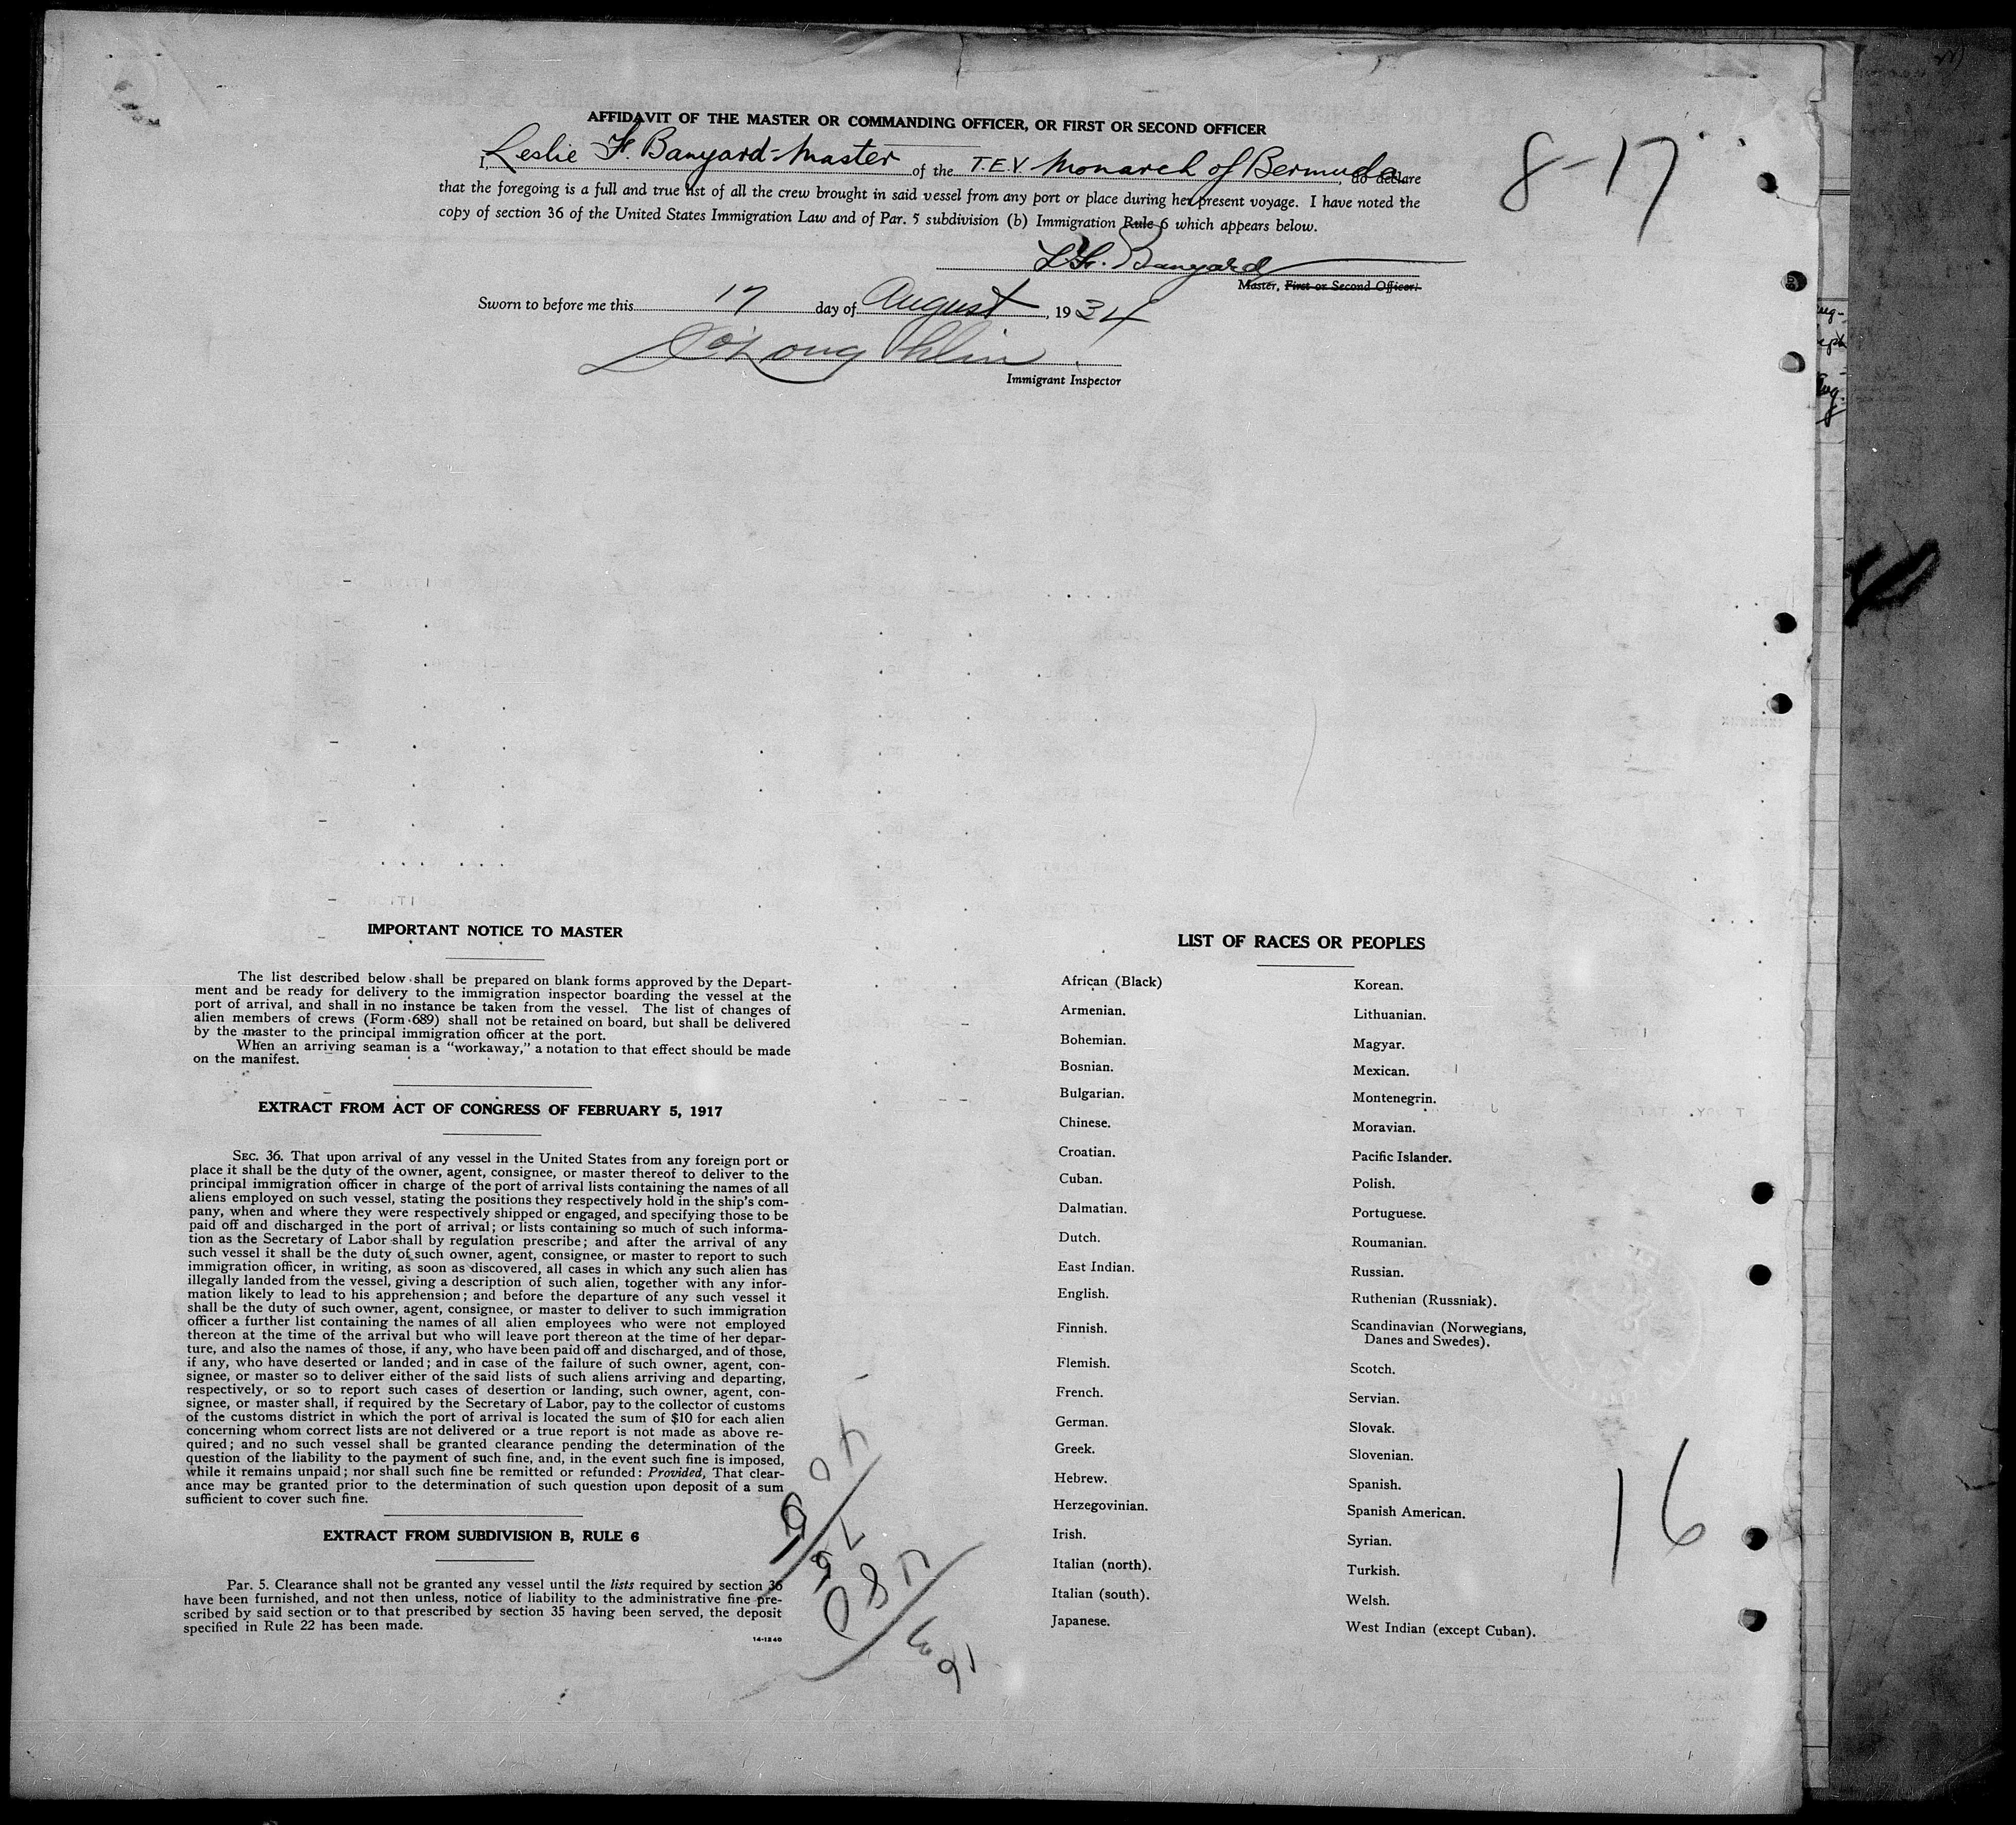 AFFIDAVIT OF THE MASTER OR COMMANDING OFFICER, OR FIRST OR SECOND OFFICER
I, Leslie F. Banyard-Master of the T.E.V. Monarch of Bermuda, do declare
that the foregoing is a full and true list of all the crew brought in said vessel from any port or place during her present voyage. I have noted the
copy of section 36 of the United States Immigration Law and of Par. 5 subdivision (b) Immigration Rule 6 which appears below.
8-17
L.F. Banyard
Master, First or Second Officer.
Sworn to before me this 17 day of August, 1934
Immigrant Inspector
IMPORTANT NOTICE TO MASTER
The list described below shall be prepared on blank forms approved by the Depart-
ment and be ready for delivery to the immigration inspector boarding the vessel at the
port of arrival, and shall in no instance be taken from the vessel. The list of changes of
alien members of crews (Form 689) shall not be retained on board, but shall be delivered
by the master to the principal immigration officer at the port.
When an arriving seaman is a “workaway,” a notation to that effect should be made
on the manifest.
EXTRACT FROM ACT OF CONGRESS OF FEBRUARY 5, 1917
SEC. 36. That upon arrival of any vessel in the United States from any foreign port or
place it shall be the duty of the owner, agent, consignee, or master thereof to deliver to the
principal immigration officer in charge of the port of arrival lists containing the names of all
aliens employed on such vessel, stating the positions they respectively hold in the ship's com-
pany, when and where they were respectively shipped or engaged, and specifying those to be
paid off and discharged in the port of arrival; or lists containing so much of such informa-
tion as the Secretary of Labor shall by regulation prescribe; and after the arrival of any
such vessel it shall be the duty of such owner, agent, consignee, or master to report to such
immigration officer, in writing, as soon as discovered, all cases in which any such alien has
illegally landed from the vessel, giving a description of such alien, together with any infor-
mation likely to lead to his apprehension; and before the departure of any such vessel it
shall be the duty of such owner, agent, consignee, or master to deliver to such immigration
officer a further list containing the names of all alien employees who were not employed
thereon at the time of the arrival but who will leave port thereon at the time of her depar-
ture, and also the names of those, if any, who have been paid off and discharged, and of those,
if any, who have deserted or landed; and in case of the failure of such owner, agent, con-
signee, or master so to deliver either of the said lists of such aliens arriving and departing,
respectively, or so to report such cases of desertion or landing, such owner, agent, con-
signee, or master shall, if required by the Secretary of Labor, pay to the collector of customs
of the customs district in which the port of arrival is located the sum of $10 for each alien
concerning whom correct lists are not delivered or a true report is not made as above re-
quired; and no such vessel shall be granted clearance pending the determination of the
question of the liability to the payment of such fine, and, in the event such fine is imposed,
while it remains unpaid; nor shall such fine be remitted or refunded: Provided, That clear-
ance may be granted prior to the determination of such question upon deposit of a sum
sufficient to cover such fine.
EXTRACT FROM SUBDIVISION B, RULE 6
Par. 5. Clearance shall not be granted any vessel until the lists required by section 36
have been furnished, and not then unless, notice of liability to the administrative fine pre-
scribed by said section or to that prescribed by section 35 having been served, the deposit
specified in Rule 22 has been made.
14-1240
LIST OF RACES OR PEOPLES
African (Black)
Armenian.
Bohemian.
Bosnian.
Bulgarian.
Chinese.
Croatian.
Cuban.
Dalmatian.
Dutch.
East Indian.
English.
Finnish.
Flemish.
French.
German.
Greek.
Hebrew.
Herzegovinian.
Irish.
Italian (north).
Italian (south).
Japanese.
Korean.
Lithuanian.
Magyar.
Mexican.
Montenegrin.
Moravian.
Pacific Islander.
Polish.
Portuguese.
Roumanian.
Russian.
Ruthenian (Russniak).
Scandinavian (Norwegians,
Danes and Swedes).
Scotch.
Servian.
Slovak.
Slovenian.
Spanish.
Spanish American.
Syrian.
Turkish.
Welsh.
West Indian (except Cuban).
16